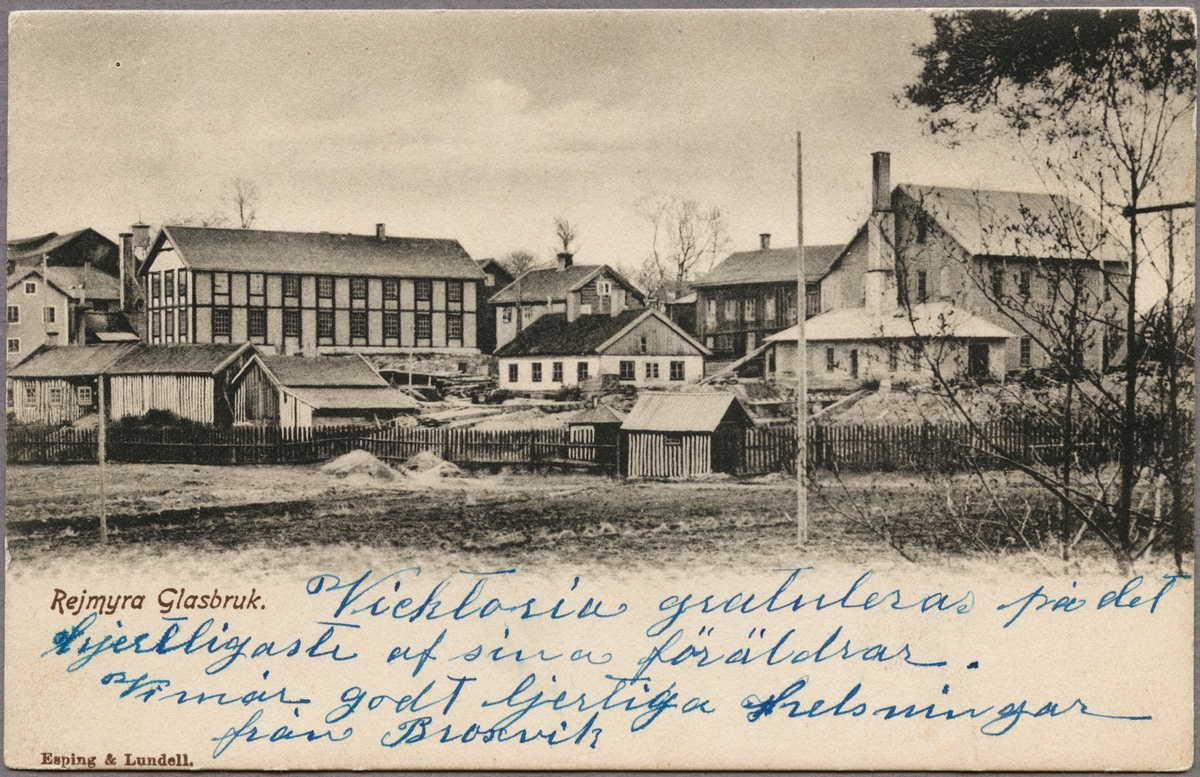 Rejmyra Glasbruk.
Vicktoria gratuleras på det
hjertligaste af sina föräldrar.
Vi mår godt hjertliga helsningar
från Broxvik
Esping & Lundell.